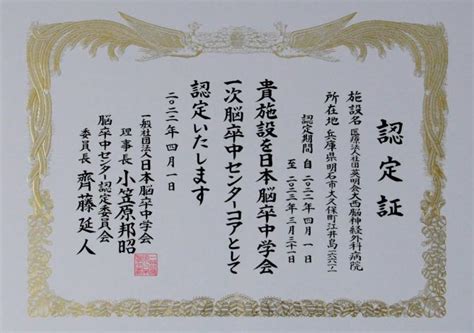 認定証
施設名 医療法人社団英明会大西脳神経外科病院
所在地 兵庫県明石市大久保町江井島一六六一・一
認定期間 自 二〇二二年四月一日
至 二〇二三年三月三十一日
貴施設を日本脳卒中学会
一次脳卒中センターコアとして
認定いたします
二〇二二年四月一日
一般社団法人日本脳卒中学会
理事長 小笠原邦昭
脳卒中センター認定委員会
委員長 齊藤延人